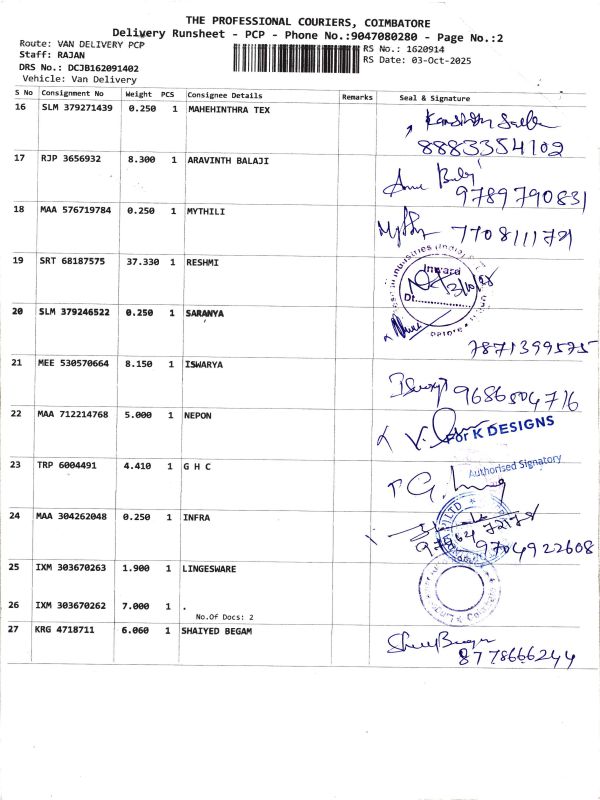 THE PROFESSIONAL COURIERS, COIMBATORE
Delivery Runsheet - PCP - Phone No.:9047080280 - Page No.:2
Route: VAN DELIVERY PCP
RS No.: 1620914
Staff: RAJAN
RS Date: 03-Oct-2025
DRS No.: DCJB162091402
Vehicle: Van Delivery
S No Consignment No Weight PCS Consignee Details Remarks Seal & Signature
16 SLM 379271439 0.250 1 MAHEHINTHRA TEX
8883354102
17 RJP 3656932 8.300 1 ARAVINTH BALAJI
9789790831
18 MAA 576719784 0.250 1 MYTHILI
7708111721
19 SRT 68187575 37.330 1 RESHMI
Inward
Dt.
20 SLM 379246522 0.250 1 SARANYA
7871399575
21 MEE 530570664 8.150 1 ISWARYA
9686504716
22 MAA 712214768 5.000 1 NEPON
For K DESIGNS
23 TRP 6004491 4.410 1 G H C
Authorised Signatory
24 MAA 304262048 0.250 1 INFRA
9704922608
25 IXM 303670263 1.900 1 LINGESWARE
26 IXM 303670262 7.000 1 .
No.Of Docs: 2
27 KRG 4718711 6.060 1 SHAIYED BEGAM
8778666244